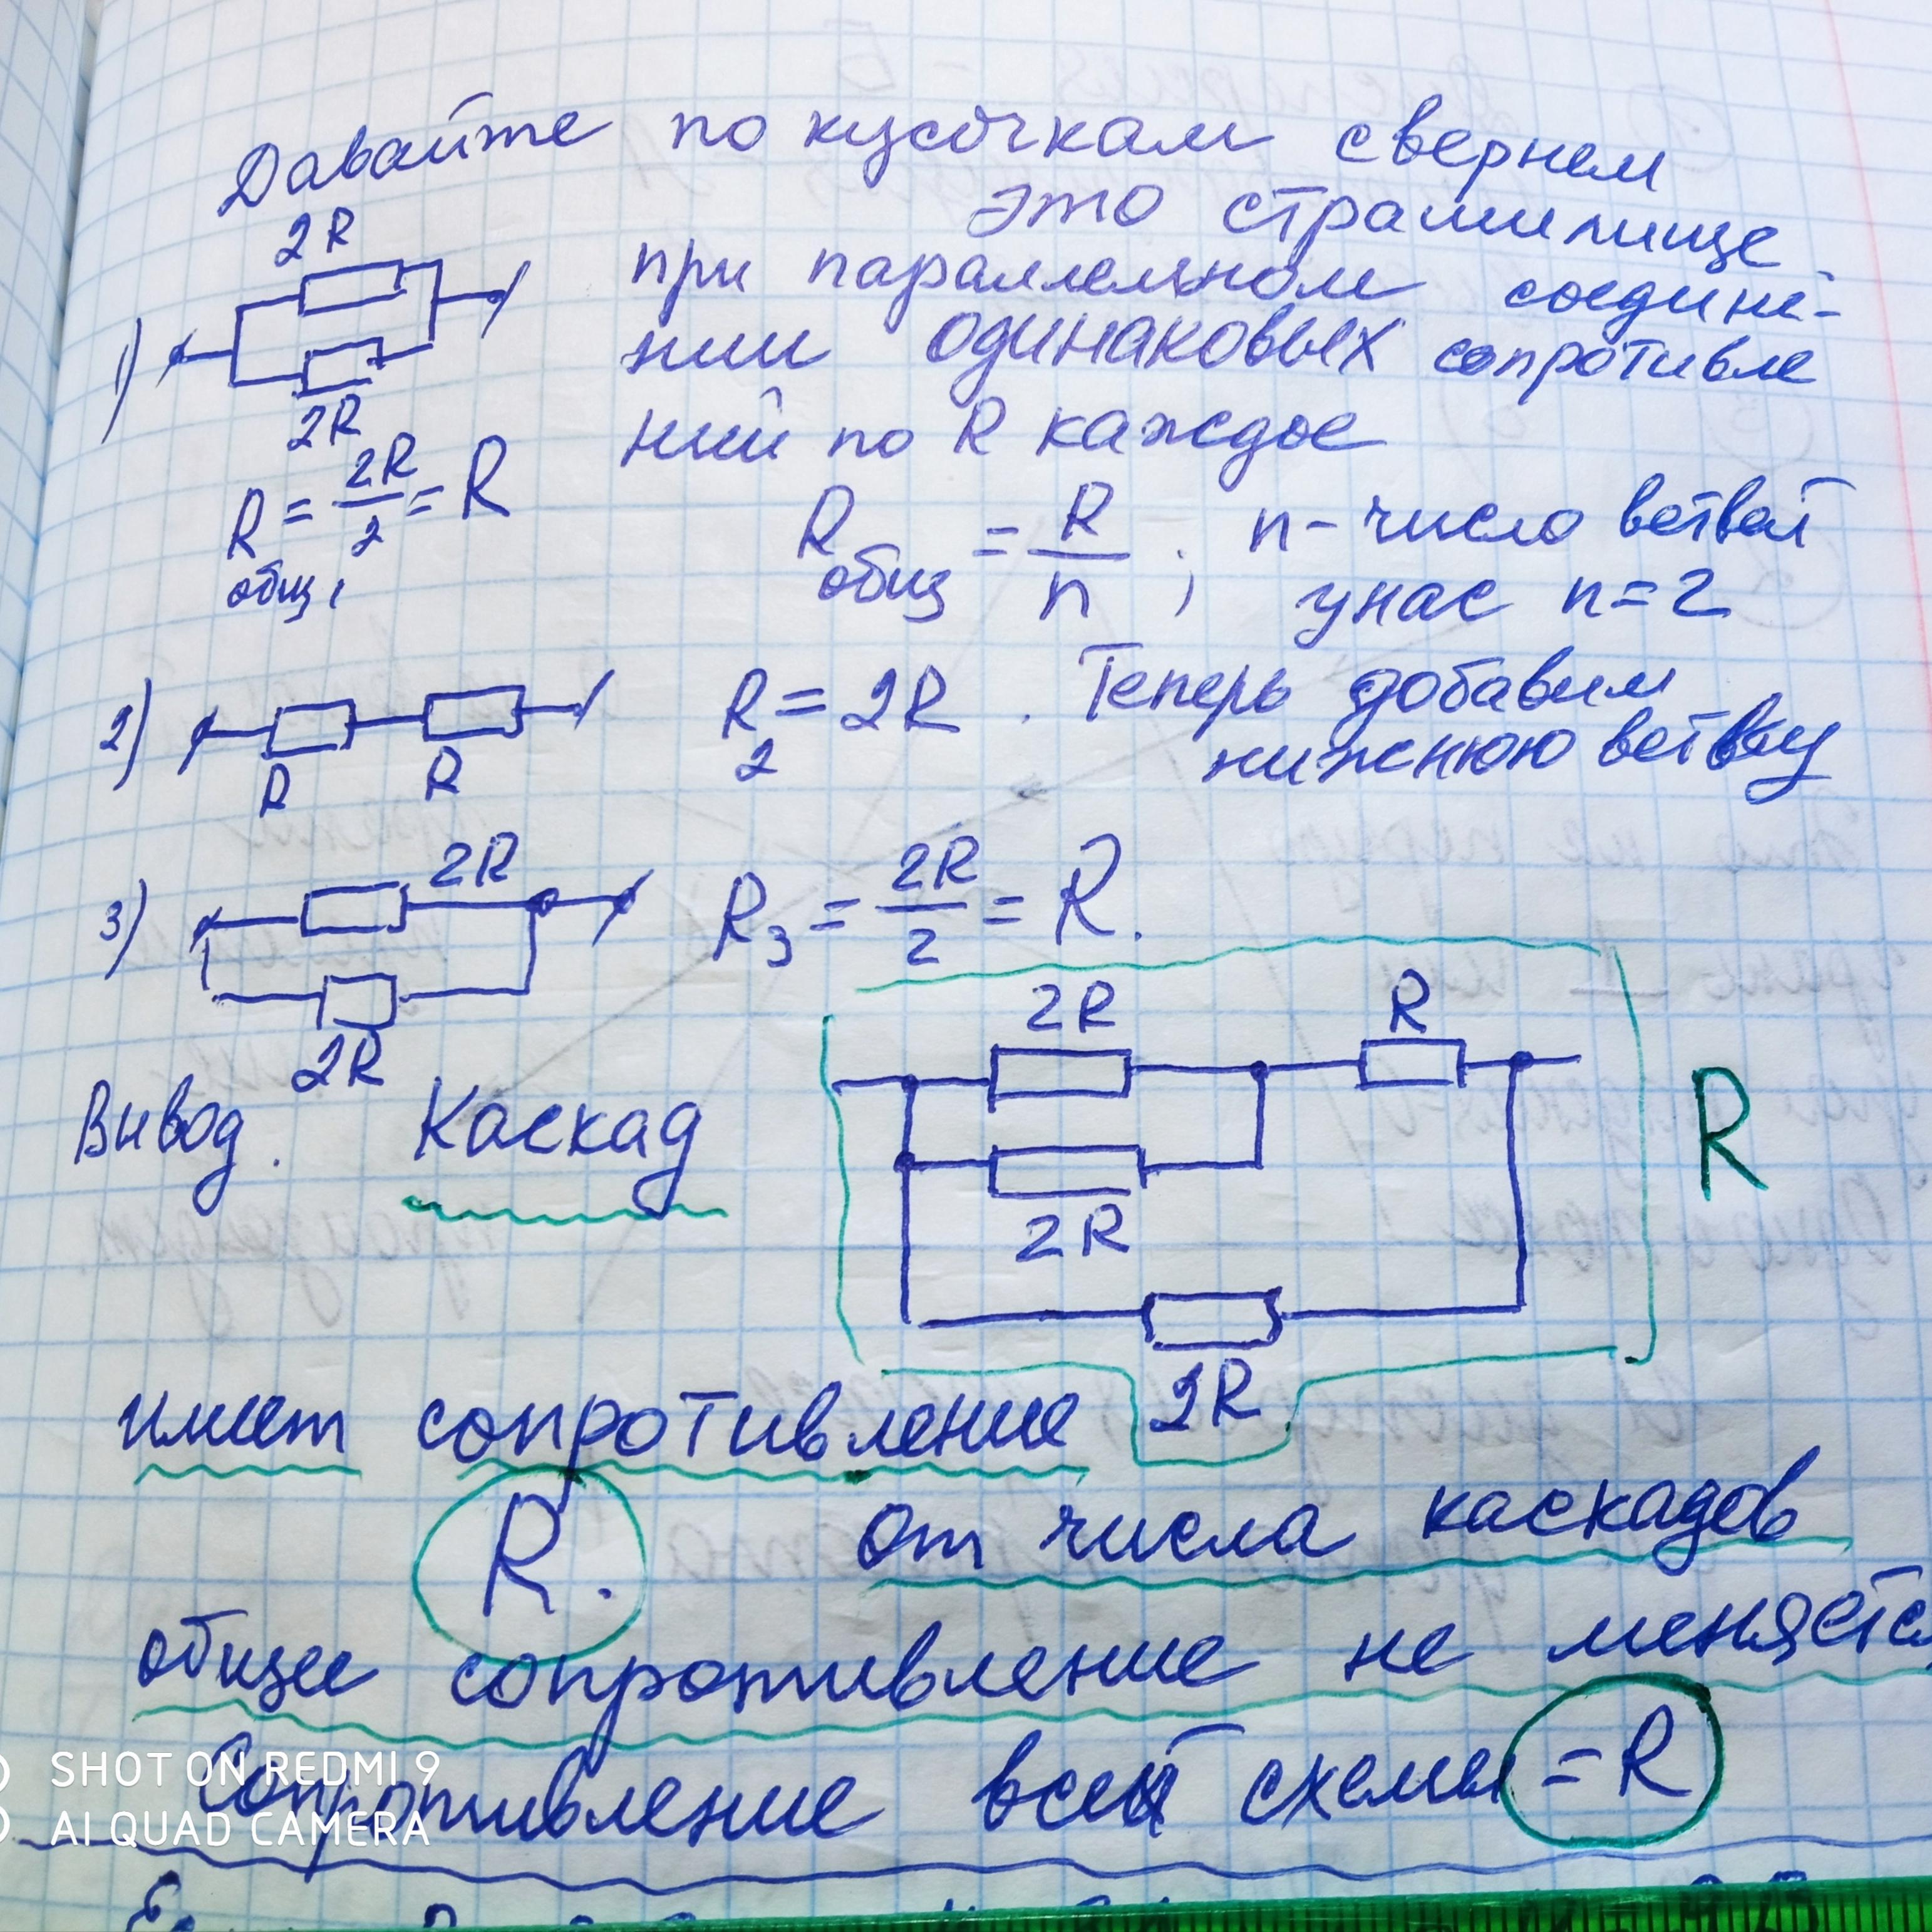 Давайте по кусочкам свернем
это страшилище.
2R
при параллельном соедине-
1)
нии одинаковых сопротивле
2R
ний по R каждое
R общ 1 = 2R/2 = R
R общ = R/n ; n - число ветвей
у нас n = 2
2) R R
R2 = 2R . Теперь добавим
нижнюю ветвку
3) 2R
R3 = 2R/2 = R.
2R
2R R
R
Вывод. Каскад
2R
2R
имеет сопротивление
R. от числа каскадов
общее сопротивление не меняется
Сопротивление всей схемы = R
SHOT ON REDMI 9
AI QUAD CAMERA